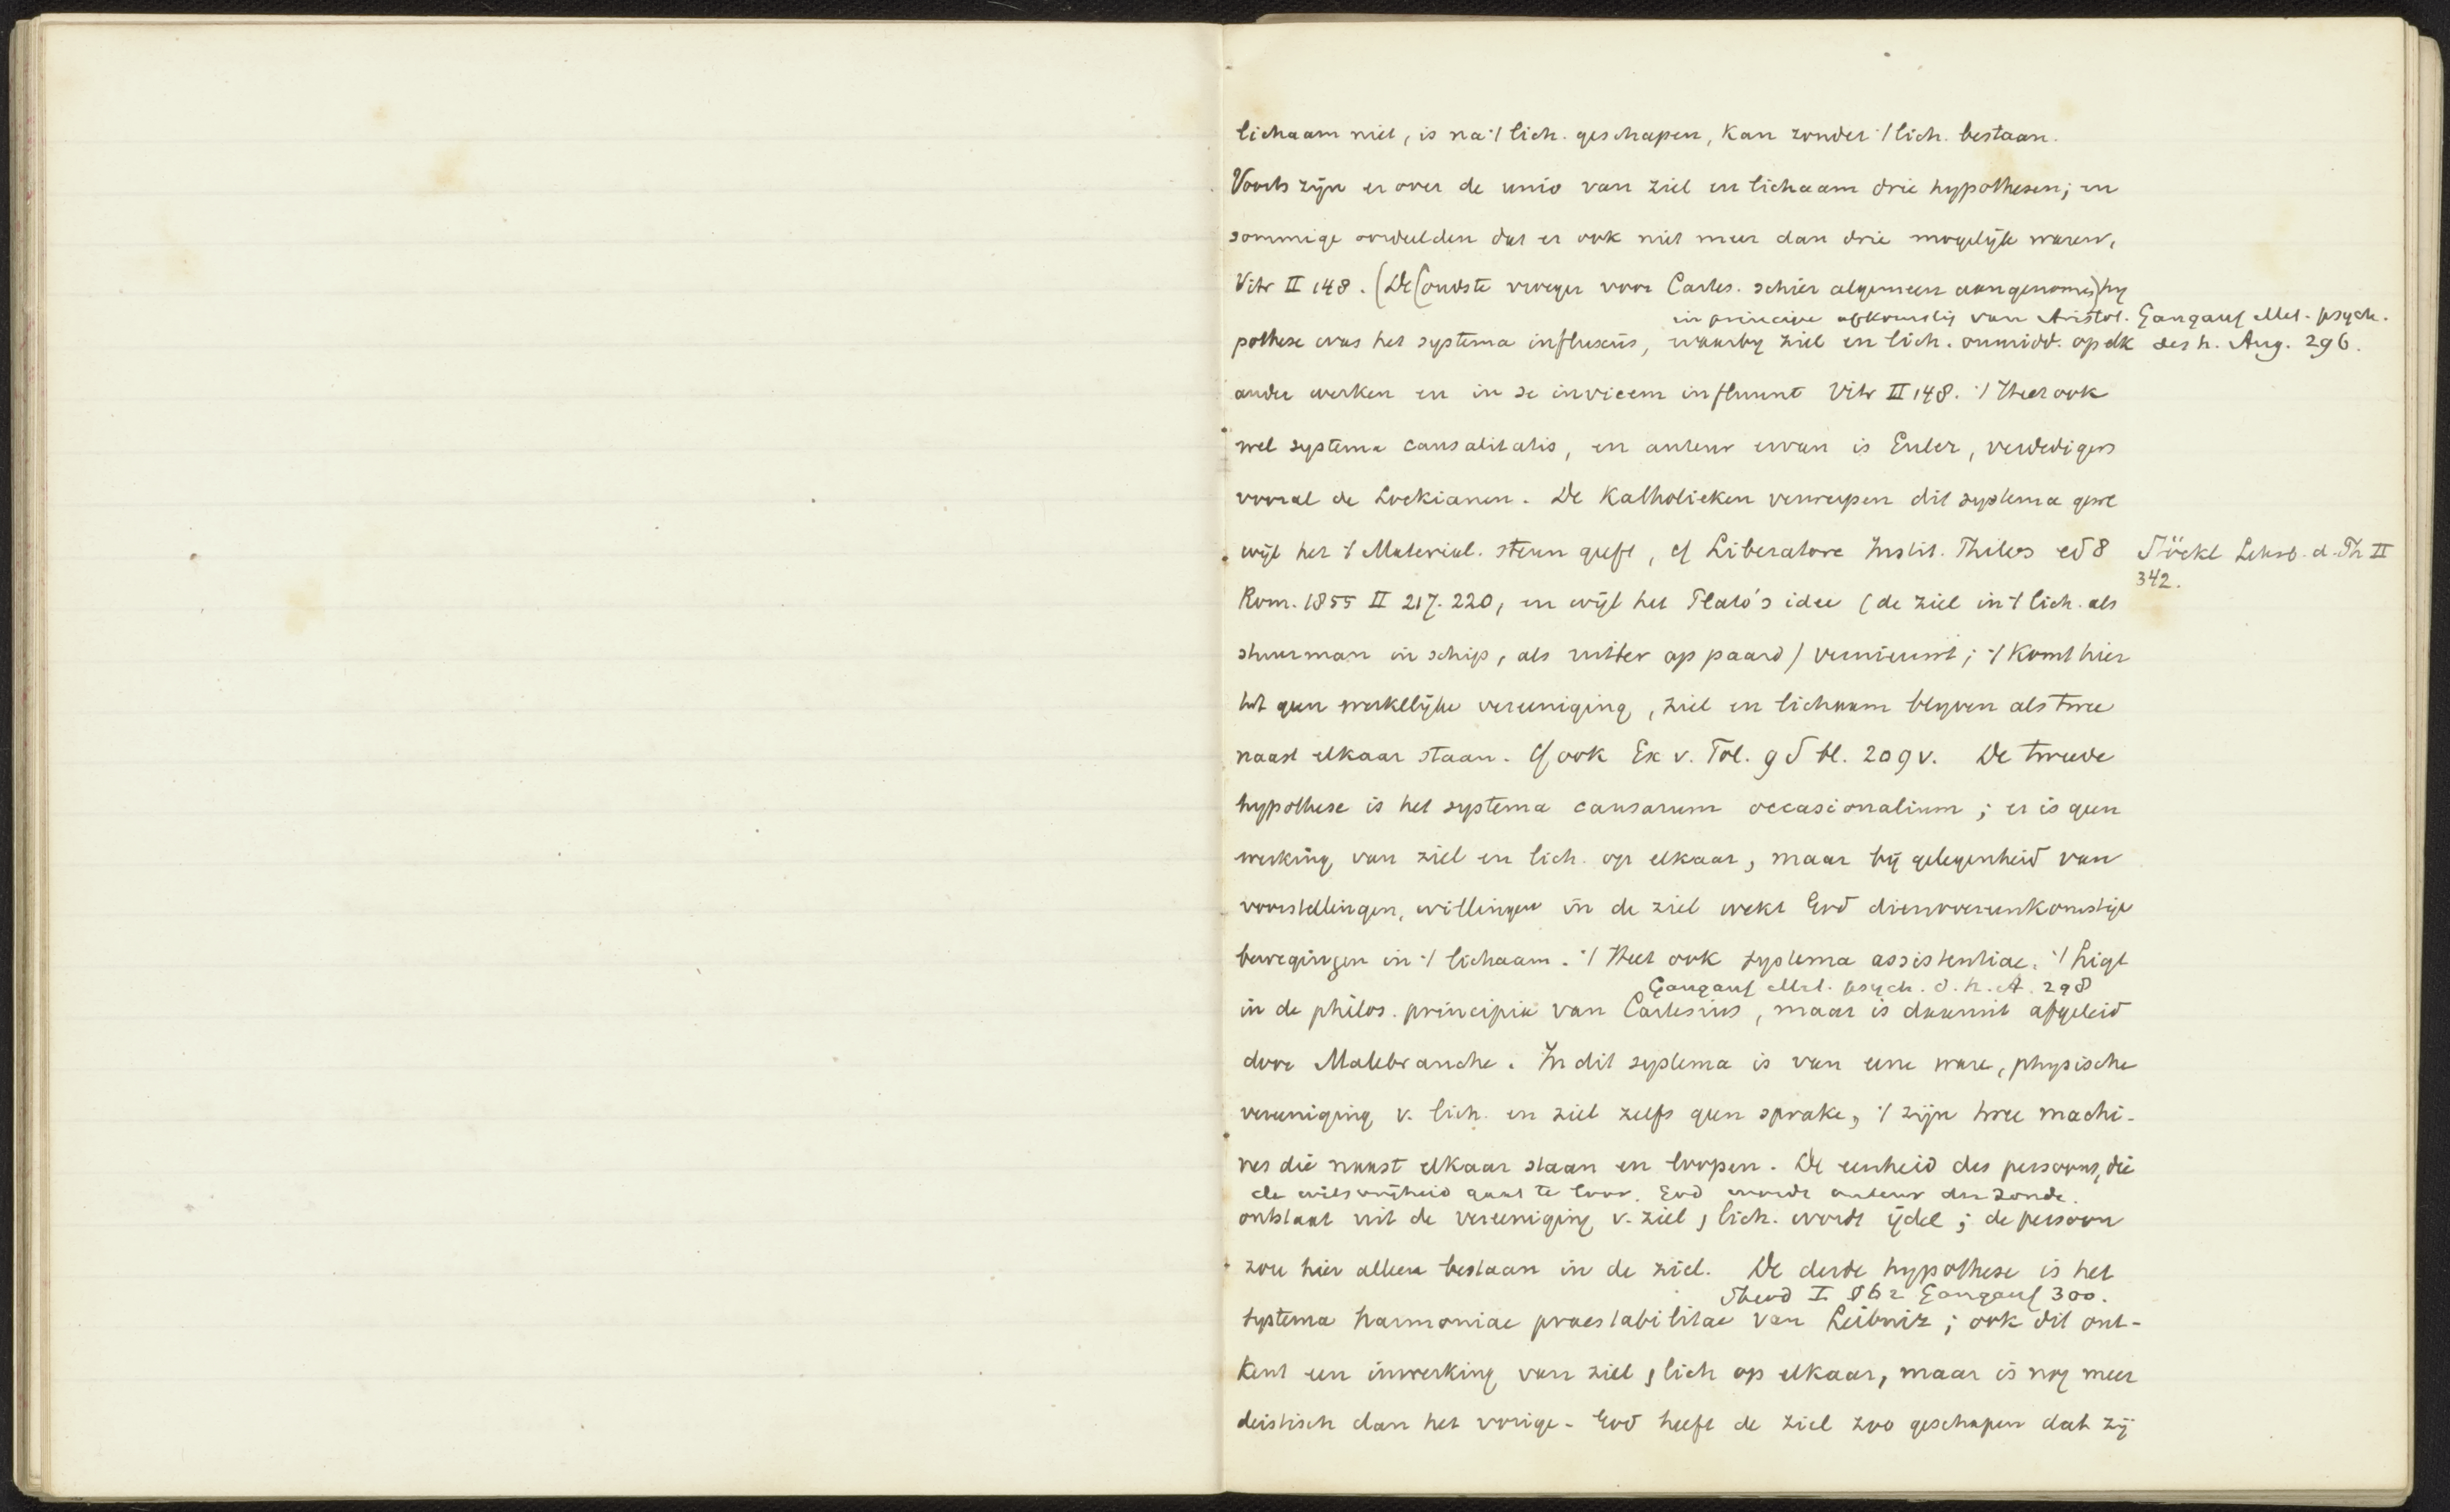 lichaam niet, is na 't lich. geschapen, kan zonder 't lich. bestaan.
Voorts zijn er over de unio van ziel en lichaam drie hypothesen; en
sommige oordeelden dat er ook niet meer dan drie mogelijk waren,
Vitr II 148. (De (oudste vroeger voor Cartes. schier algemeen aangenomen) hy
in principe afkomstig van Aristot. Gangauf Met. psych.
pothese was het systema influxus, waarbij ziel en lich. onmidd. op elk
des h. Aug. 296.
ander werken en in se invicem influunt Vitr II 148. 't Heet ook
wel systema causalitatis, en auteur ervan is Euler, verdedigers
vooral de Lockianen. De Katholieken verwerpen dit systema
wijl het 't Material. steun geeft, cf Liberatore Instit. Philos ed 8
Stöckl Lehrb. d. Ph II
342.
Rom. 1855 II 217. 220, en wijl het Plato's idee (de ziel in 't lich. als
stuurman in schip, als ruiter op paard) vernieuwt; 't komt hier
tot geen werkelijke vereeniging, ziel en lichaam blijven als twee
naast elkaar staan. Cf ook Ex v. Tol. 9 d bl. 209 v. De tweede
hypothese is het systema causarum occasionalium; er is geen
werking van ziel en lich. op elkaar, maar bij gelegenheid van
voorstellingen, willingen in de ziel wekt God dienovereenkomstige
bewegingen in 't lichaam. 't Heet ook systema assistentiae. 't Ligt
Gangauf Met. psych. d. h. A. 298
in de philos. principia van Cartesius, maar is daaruit afgeleid
door Malebranche. In dit systema is van eene ware, physische
vereeniging v. lich. en ziel zelfs geen sprake, 't zijn twee machi-
nes die naast elkaar staan en loopen. De eenheid des persoons, die
de wilsvrijheid gaat te loor. God wordt auteur der zonde.
ontstaat uit de vereeniging v. ziel, lich. wordt ijdel; de persoon
zou hier alleen bestaan in de ziel. De derde hypothese is het
I Gangauf 300.
systema harmoniae praestabilitae van Leibniz; ook dit ont-
kent een inwerking van ziel, lich op elkaar, maar is nog meer
deistisch dan het vorige. God heeft de ziel zoo geschapen dat zij